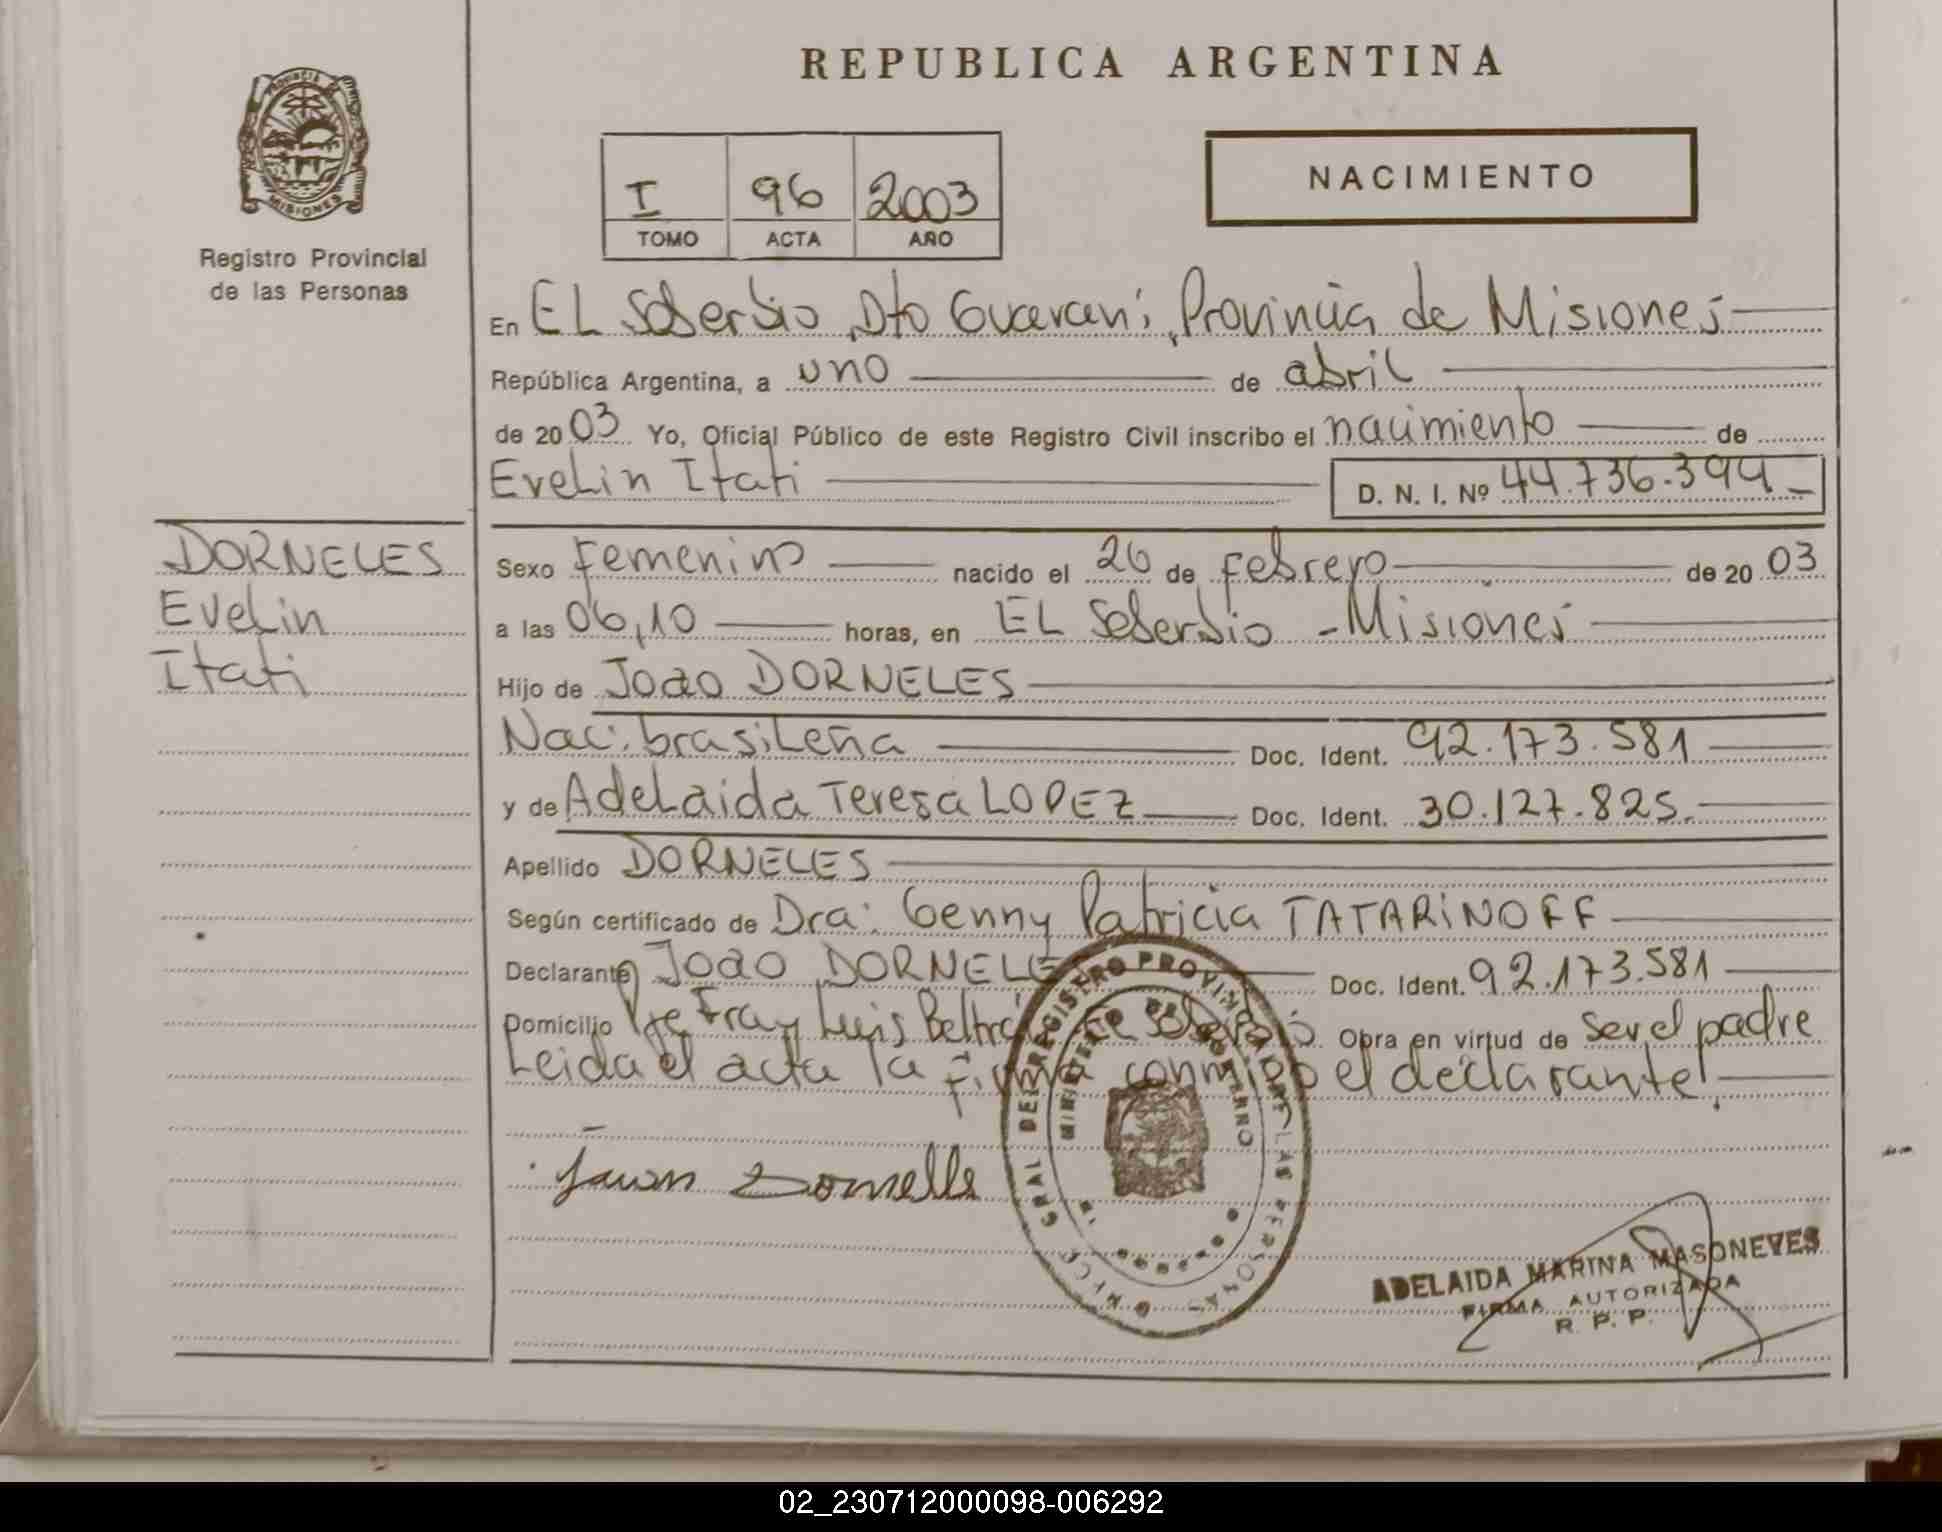 REPUBLICA ARGENTINA
PROVINCIA DE
MISIONES
Registro Provincial
de las Personas
I 96 2003
TOMO ACTA AÑO
NACIMIENTO
En EL Soberbio, Dto Guarani, Provincia de Misiones
República Argentina, a uno de abril
de 2003 Yo, Oficial Público de este Registro Civil inscribo el nacimiento de
Evelin Itati D. N. I. Nº 44.736.394
DORNELES
Evelin
Itati
Sexo Femenino nacido el 26 de Febrero de 2003
a las 06,10 horas, en EL Soberbio - Misiones
Hijo de Joao DORNELES
Nac: brasileña Doc. Ident. 92.173.581
y de Adelaida Teresa LOPEZ Doc. Ident. 30.127.825.
Apellido DORNELES
Según certificado de Dra: Genny Patricia TATARINOFF
Declarante Joao DORNELE Doc. Ident. 92.173.581
Domicilio Pje Fray Luis Beltrán Soberbio Obra en virtud de ser el padre
Leida el acta la firma conmigo el declarante.
GRAL DEL REGISTRO PROVINCIAL DE LAS PERSONAS
MINISTERIO DE GOBIERNO
Juan Dornelle
ADELAIDA MARINA MASONEVES
FIRMA AUTORIZADA
R. P. P.
02_230712000098-006292